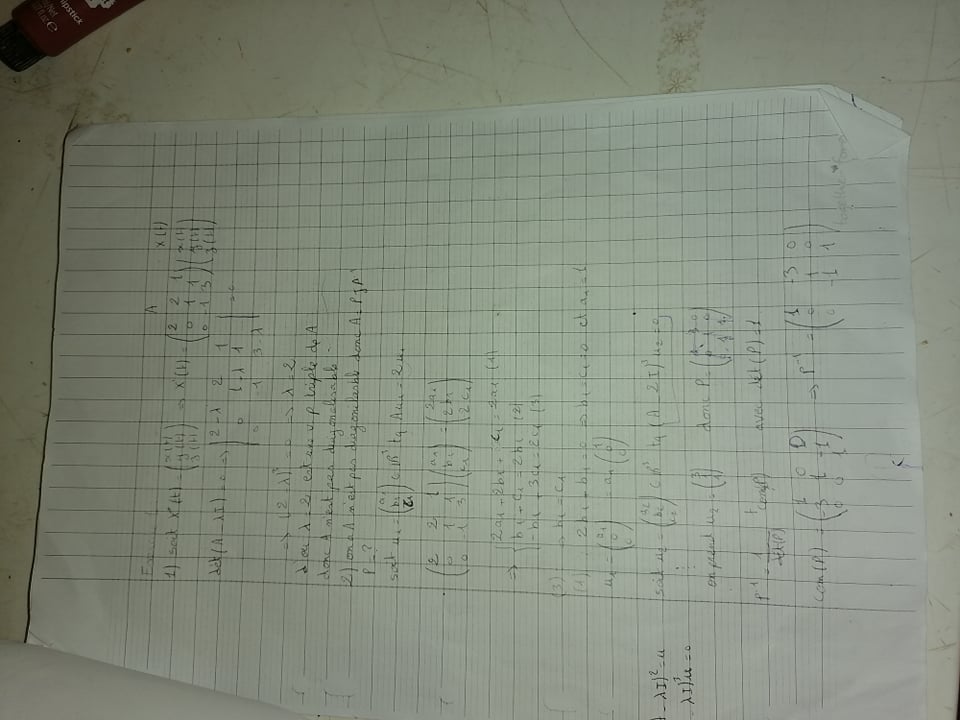 A
X(t)
1) soit X(t) = (x(t) y(t) z(t)) ⇒ X'(t) = (2 2 1 / 0 1 1 / 0 -1 3) (x(t) y(t) z(t))
det(A - λI) = 0 ⇒ |2-λ 2 1 / 0 1-λ 1 / 0 -1 3-λ| = 0
⇒ (2-λ)³ = 0 ⇒ λ = 2
d'où λ = 2 est une v.p triple de A
donc A n'est pas diagonalisable
2) on a A n'est pas diagonalisable donc A = PJP⁻¹
P = ?
soit u₁ = (a₁ b₁ c₁) ∈ ℝ³ tq Au₁ = 2u₁
(2 2 1 / 0 1 1 / 0 -1 3) (a₁ b₁ c₁) = (2a₁ 2b₁ 2c₁)
2a₁ + 2b₁ + c₁ = 2a₁ (1)
⇒ b₁ + c₁ = 2b₁ (2)
-b₁ + 3c₁ = 2c₁ (3)
(3) ⇒ b₁ = c₁
(1) 2b₁ + b₁ = 0 ⇒ b₁ = c₁ = 0 et a₁ = 1
u₁ = (a₁ 0 0) = a₁ (1 0 0)
- λI)² = u
soit u₂ = (a₂ b₂ c₂) ∈ ℝ³ tq (A - 2I)³ u₂ = 0
- λI)³u = 0
on prend u₂ = (3 1 1) donc P =
P⁻¹ = 1/det(P) ᵗcom(P) avec det(P) = 1
com(P) = (1 0 0 / -3 1 -1 / 0 0 1) ⇒ P⁻¹ = (1 -3 0 / 0 1 0 / 0 -1 1)